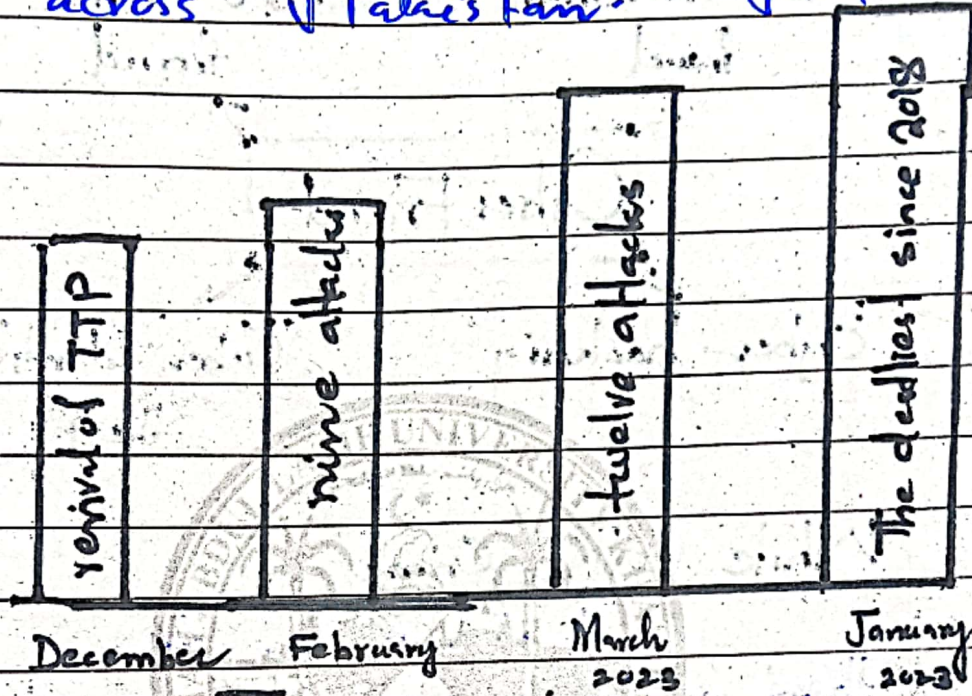 across Pakistan.
revival of TTP
nine attacks
twelve attacks
The deadliest since 2018
December
February
March
2023
January
2023
UNIVER